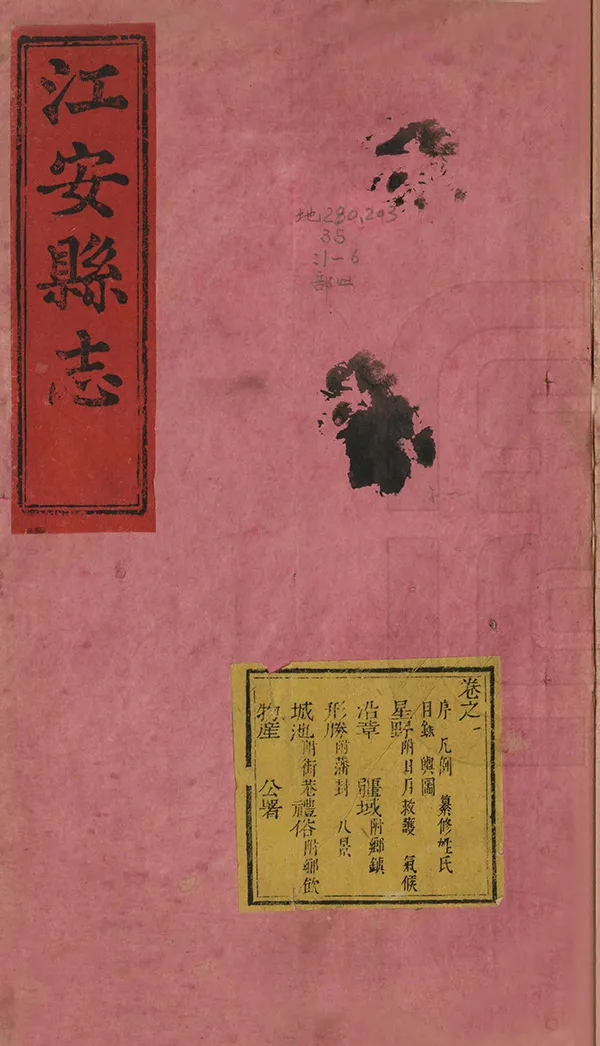 江安縣志
地280.203
35
:1-6
部四
卷之一
序 凡例 纂修姓氏
目錄 輿圖
星野附日月救護 氣候
沿革 疆域附鄉鎮
形勝附蕃封 八景
城池附街巷禮俗附鄉飲
物産 公署